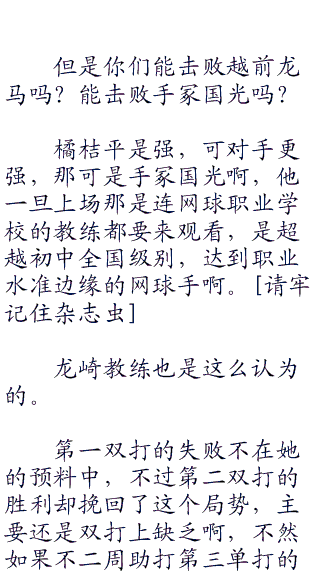 但是你们能击败越前龙
马吗？能击败手冢国光吗？
橘桔平是强，可对手更
强，那可是手冢国光啊，他
一旦上场那是连网球职业学
校的教练都要来观看，是超
越初中全国级别，达到职业
水准边缘的网球手啊。[请牢
记住杂志虫]
龙崎教练也是这么认为
的。
第一双打的失败不在她
的预料中，不过第二双打的
胜利却挽回了这个局势，主
要还是双打上缺乏啊，不然
如果不二周助打第三单打的